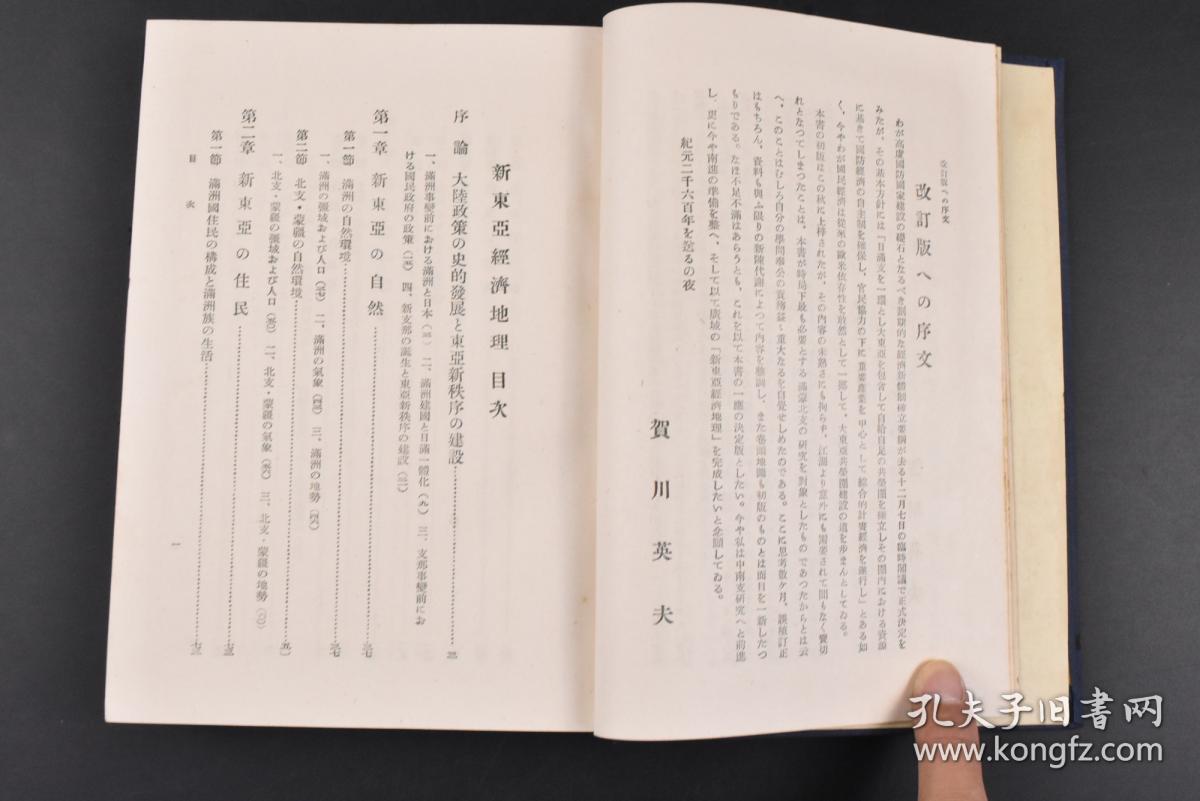 改訂版への序文
改訂版への序文
わが高度國防國家建設の礎石となるべき劃期的な經濟新體制確立要綱が去る十二月七日の臨時閣議で正式決定を
みたが、その基本方針には『日滿支を一環とし大東亞を包容して自給自足の共榮圏を確立しその圏内における資源
に基きて國防經濟の自主制を確保し、官民協力の下に重要產業を中心として綜合的計畫經濟を遂行し』とある如
く、今やわが國民經濟は從來の歐米依存性を敢然として一擲して、大東亞共榮圏建設の道を歩まんとしてゐる。
本書の初版はこの秋に上梓されたが、その內容の未熟さにも拘らず、江湖より意外にも需要されて間もなく賣切
れとなつてしまつたことは、本書が時局下最も必要とする滿蒙北支の研究を對象としたものであつたからとは云
へ、このことはむしろ自分の學問奉公の責務益〻重大なるを自覺せしめたのである。ここに思考數ケ月、誤植訂正
はもちろん、資料も能ふ限りの新陳代謝によつて內容を整調し、また卷頭地圖も初版のものとは面目を一新したつ
もりである。なほ不足不滿はあらうとも、これを以て本書の一應の決定版としたい。今や私は中南支研究へと前進
し、更に今や南進の準備を整へ、そして以て廣域の『新東亞經濟地理』を完成したいと念願してゐる。
紀元二千六百年を送るの夜
賀川英夫
新東亞經濟地理 目次
序論 大陸政策の史的發展と東亞新秩序の建設……三
一、滿洲事變前における滿洲と日本(三) 二、滿洲建國と日滿一體化(九) 三、支那事變前にお
ける國民政府の政策(一五) 四、新支那の誕生と東亞新秩序の建設(二一)
第一章 新東亞の自然……三七
第一節 滿洲の自然環境……三七
一、滿洲の彊域および人口(三七) 二、滿洲の氣象(四三) 三、滿洲の地勢(四六)
第二節 北支・蒙疆の自然環境……五〇
一、北支・蒙疆の彊域および人口(五〇) 二、北支・蒙疆の氣象(五六) 三、北支・蒙疆の地勢(六〇)
第二章 新東亞の住民……七三
第一節 滿洲國住民の構成と滿洲族の生活……七三
目次
一
孔夫子旧书网
www.kongfz.com